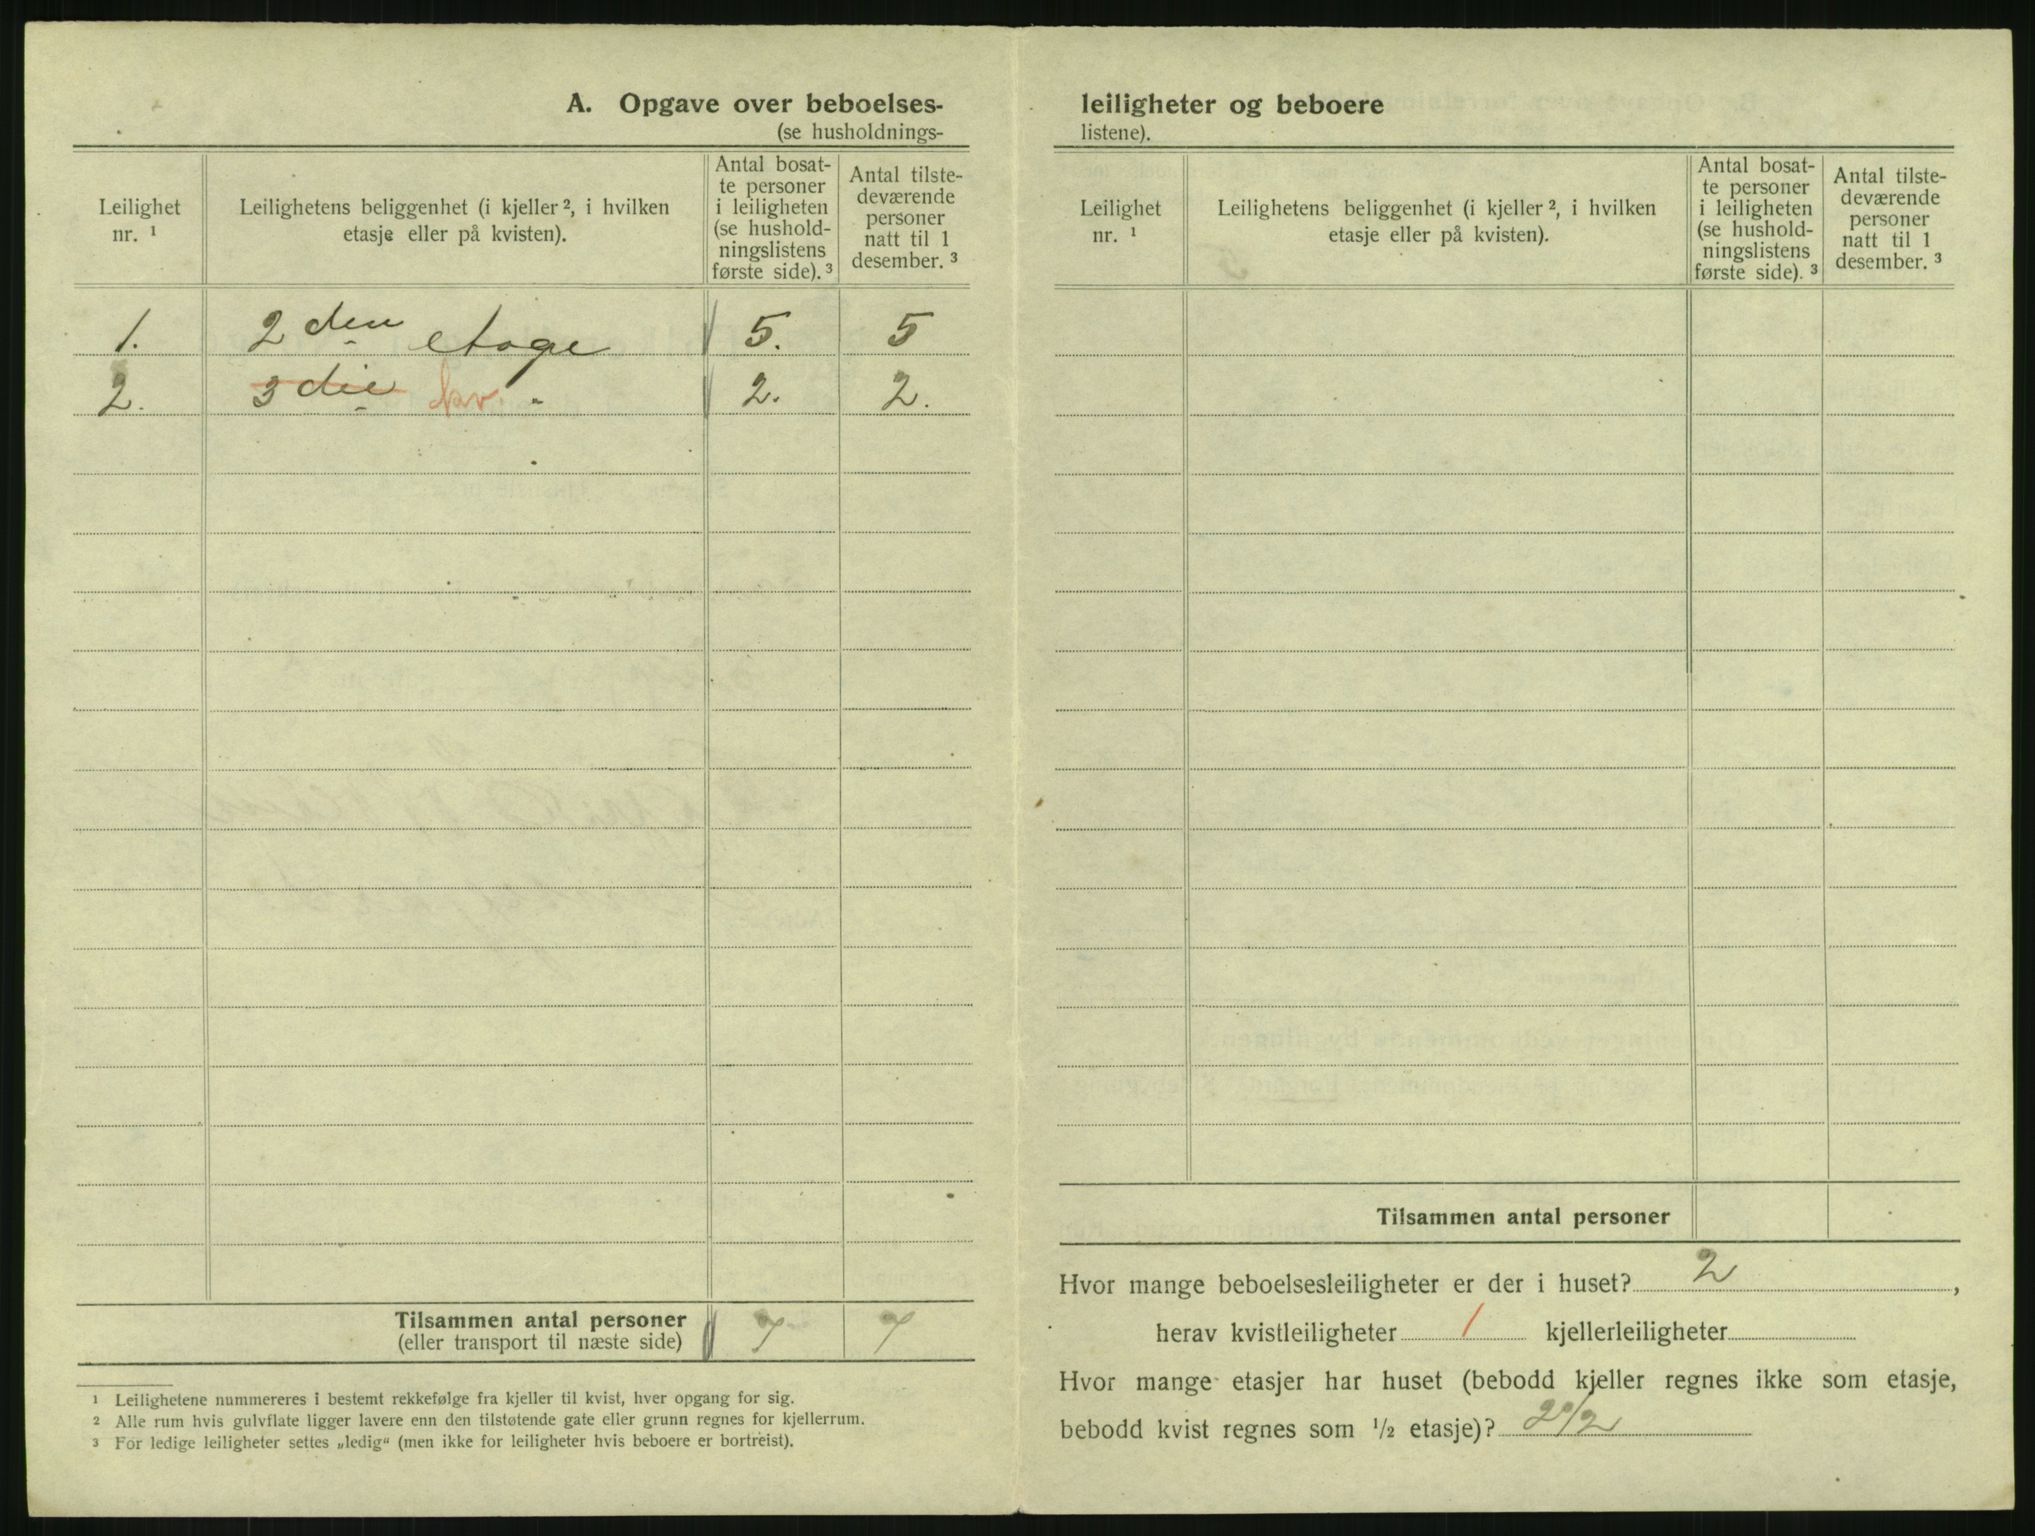 A. Opgave over beboelses-
(se husholdnings-
Leilighet
nr. ¹
Leilighetens beliggenhet (i kjeller ², i hvilken
etasje eller på kvisten).
Antal bosat-
te personer
i leiligheten
(se hushold-
ningslistens
første side). ³
Antal tilste-
deværende
personer
natt til 1
desember. ³
1. 2 den etage 5. 5
2. 3 die kv. " 2. 2.
Tilsammen antal personer 7 7
(eller transport til næste side)
¹ Leilighetene nummereres i bestemt rekkefølge fra kjeller til kvist, hver opgang for sig.
² Alle rum hvis gulvflate ligger lavere enn den tilstøtende gate eller grunn regnes for kjellerrum.
³ For ledige leiligheter settes „ledig“ (men ikke for leiligheter hvis beboere er bortreist).
leiligheter og beboere
listene).
Leilighet
nr. ¹
Leilighetens beliggenhet (i kjeller ², i hvilken
etasje eller på kvisten).
Antal bosat-
te personer
i leiligheten
(se hushold-
ningslistens
første side). ³
Antal tilste-
deværende
personer
natt til 1
desember. ³
Tilsammen antal personer
Hvor mange beboelsesleiligheter er der i huset? 2 ,
herav kvistleiligheter 1 kjellerleiligheter
Hvor mange etasjer har huset (bebodd kjeller regnes ikke som etasje,
bebodd kvist regnes som ½ etasje)? 2½